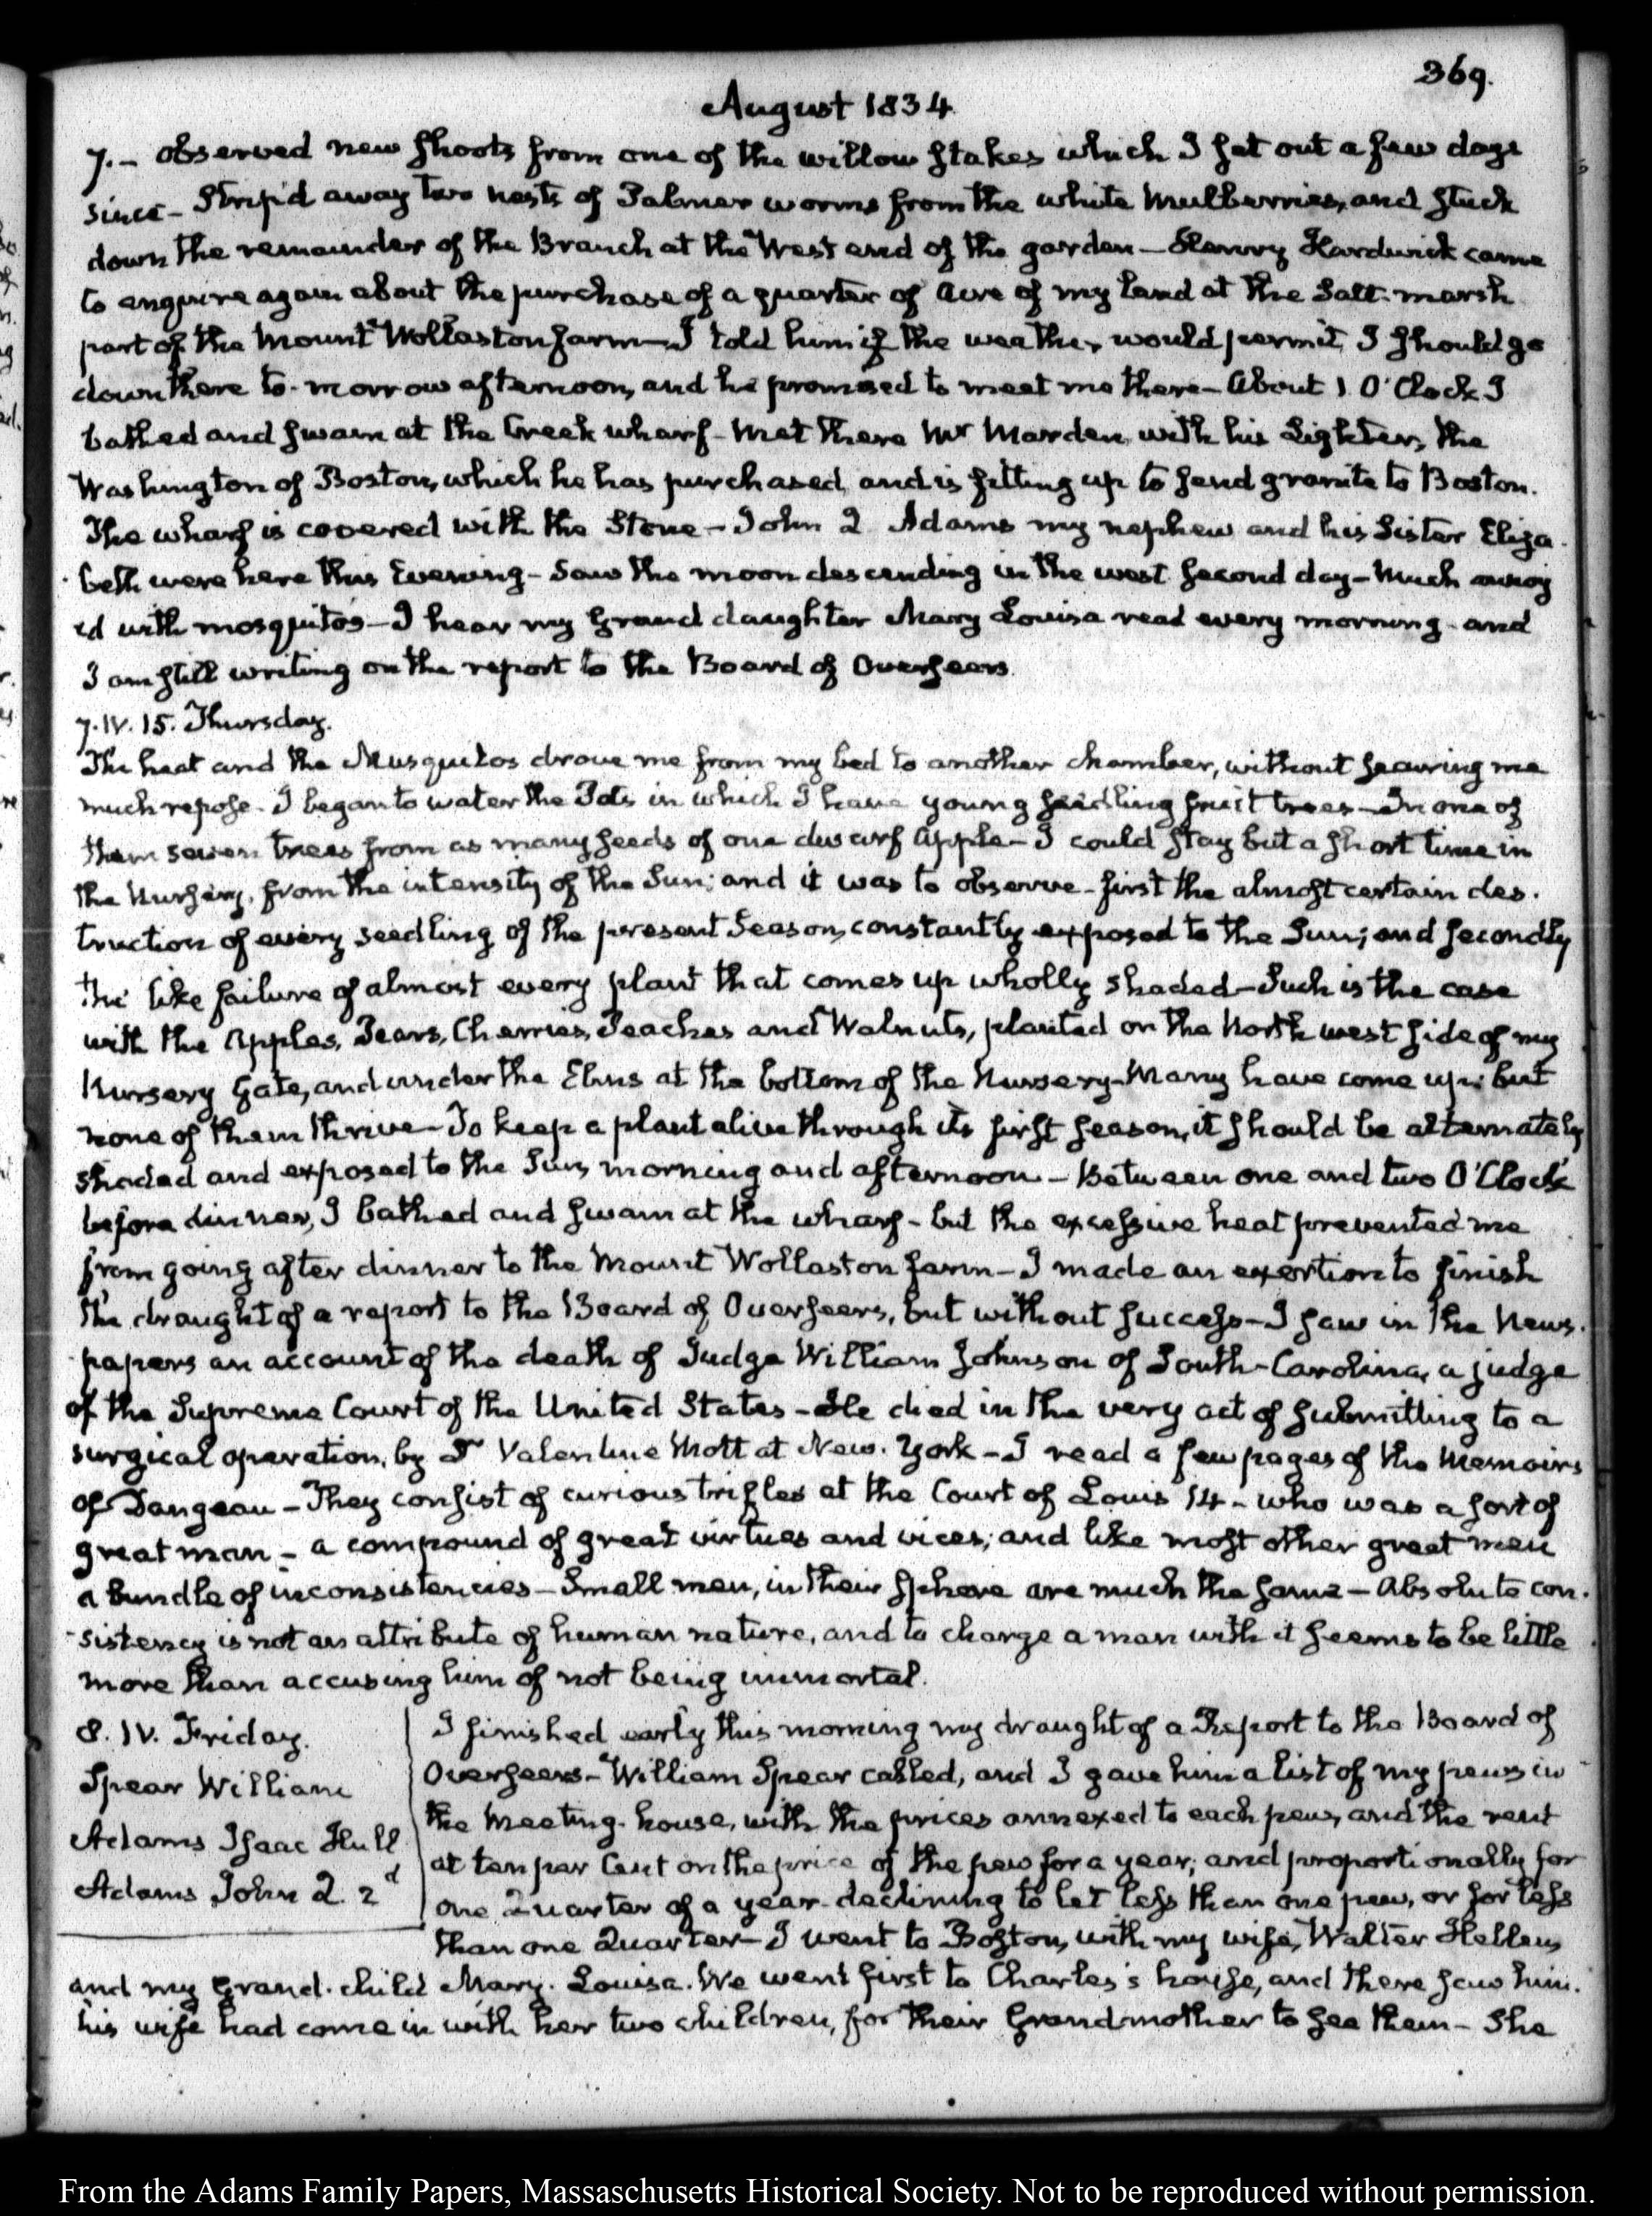 369.
August 1834
7.— observed new shoots from one of the willow stakes which I set out a few days
since— Strip'd away two nests of Palmer worms from the white Mulberries, and stuck
down the remainder of the Branch at the West end of the garden— Henry Hardwick came
to enquire again about the purchase of a quarter of acre of my land at the Salt-marsh
part of the Mount Wollaston farm— I told him if the weather would permit, I should go
down there to-morrow afternoon, and he promised to meet me there— About 1 O'Clock I
bathed and swam at the Creek wharf— Met there Mr Marden with his Lighter, the
Washington of Boston, which he has purchased, and is fitting up to send granite to Boston.
The wharf is covered with the Stone— John Q Adams my nephew and his Sister Eliza-
beth were here this Evening— Saw the moon descending in the west second day— Much annoy
ed with mosquitos— I hear my Grand daughter Mary Louisa read every morning— and
I am still writing on the report to the Board of Overseers.
7. IV. 15. Thursday.
The heat and the Musquitos drove me from my bed to another chamber, without securing me
much repose. I began to water the Pots in which I have young seedling fruit trees— In one of
them seven trees from as many seeds of one dwarf apple— I could stay but a short time in
the Nursery, from the intensity of the Sun; and it was to observe— first the almost certain des-
truction of every seedling of the present Season, constantly exposed to the Sun; and secondly
the like failure of almost every plant that comes up wholly shaded— Such is the case
with the Apples, Pears, Cherries, Peaches and Walnuts, planted on the North west side of my
Nursery Gate, and under the Elms at the bottom of the Nursery— Many have come up; but
none of them thrive— To keep a plant alive through its first season, it should be alternately
shaded and exposed to the Sun, morning and afternoon— Between one and two O'Clock
before dinner, I bathed and swam at the wharf— but the excessive heat prevented me
from going after dinner to the Mount Wollaston farm— I made an exertion to finish
the draught of a report to the Board of Overseers, but without success— I saw in the News-
papers an account of the death of Judge William Johnson of South-Carolina, a judge
of the Supreme Court of the United States— He died in the very act of submitting to a
surgical operation, by Dr Valentine Mott at New-York— I read a few pages of the Memoirs
of Dangeau— They consist of curious trifles at the Court of Louis 14— who was a sort of
great man— a compound of great virtues and vices; and like most other great men
a bundle of inconsistencies— Small men, in their sphere are much the same— Absolute con-
-sistency is not an attribute of human nature, and to charge a man with it seems to be little
more than accusing him of not being immortal.
8. IV. Friday.
Spear William
Adams Isaac Hull
Adams John Q. 2d
I finished early this morning my draught of a Report to the Board of
Overseers— William Spear called, and I gave him a list of my pews in
the Meeting-house, with the prices annexed to each pew, and the rent
at ten per Cent on the price of the pew for a year; and proportionally for
one Quarter of a year— declining to let less than one pew, or for less
than one Quarter— I went to Boston, with my wife, Walter Hellen,
and my Grand-child Mary-Louisa. We went first to Charles's house, and there saw him.
his wife had come in with her two children, for their Grandmother to see them— She
From the Adams Family Papers, Massaschusetts Historical Society. Not to be reproduced without permission.